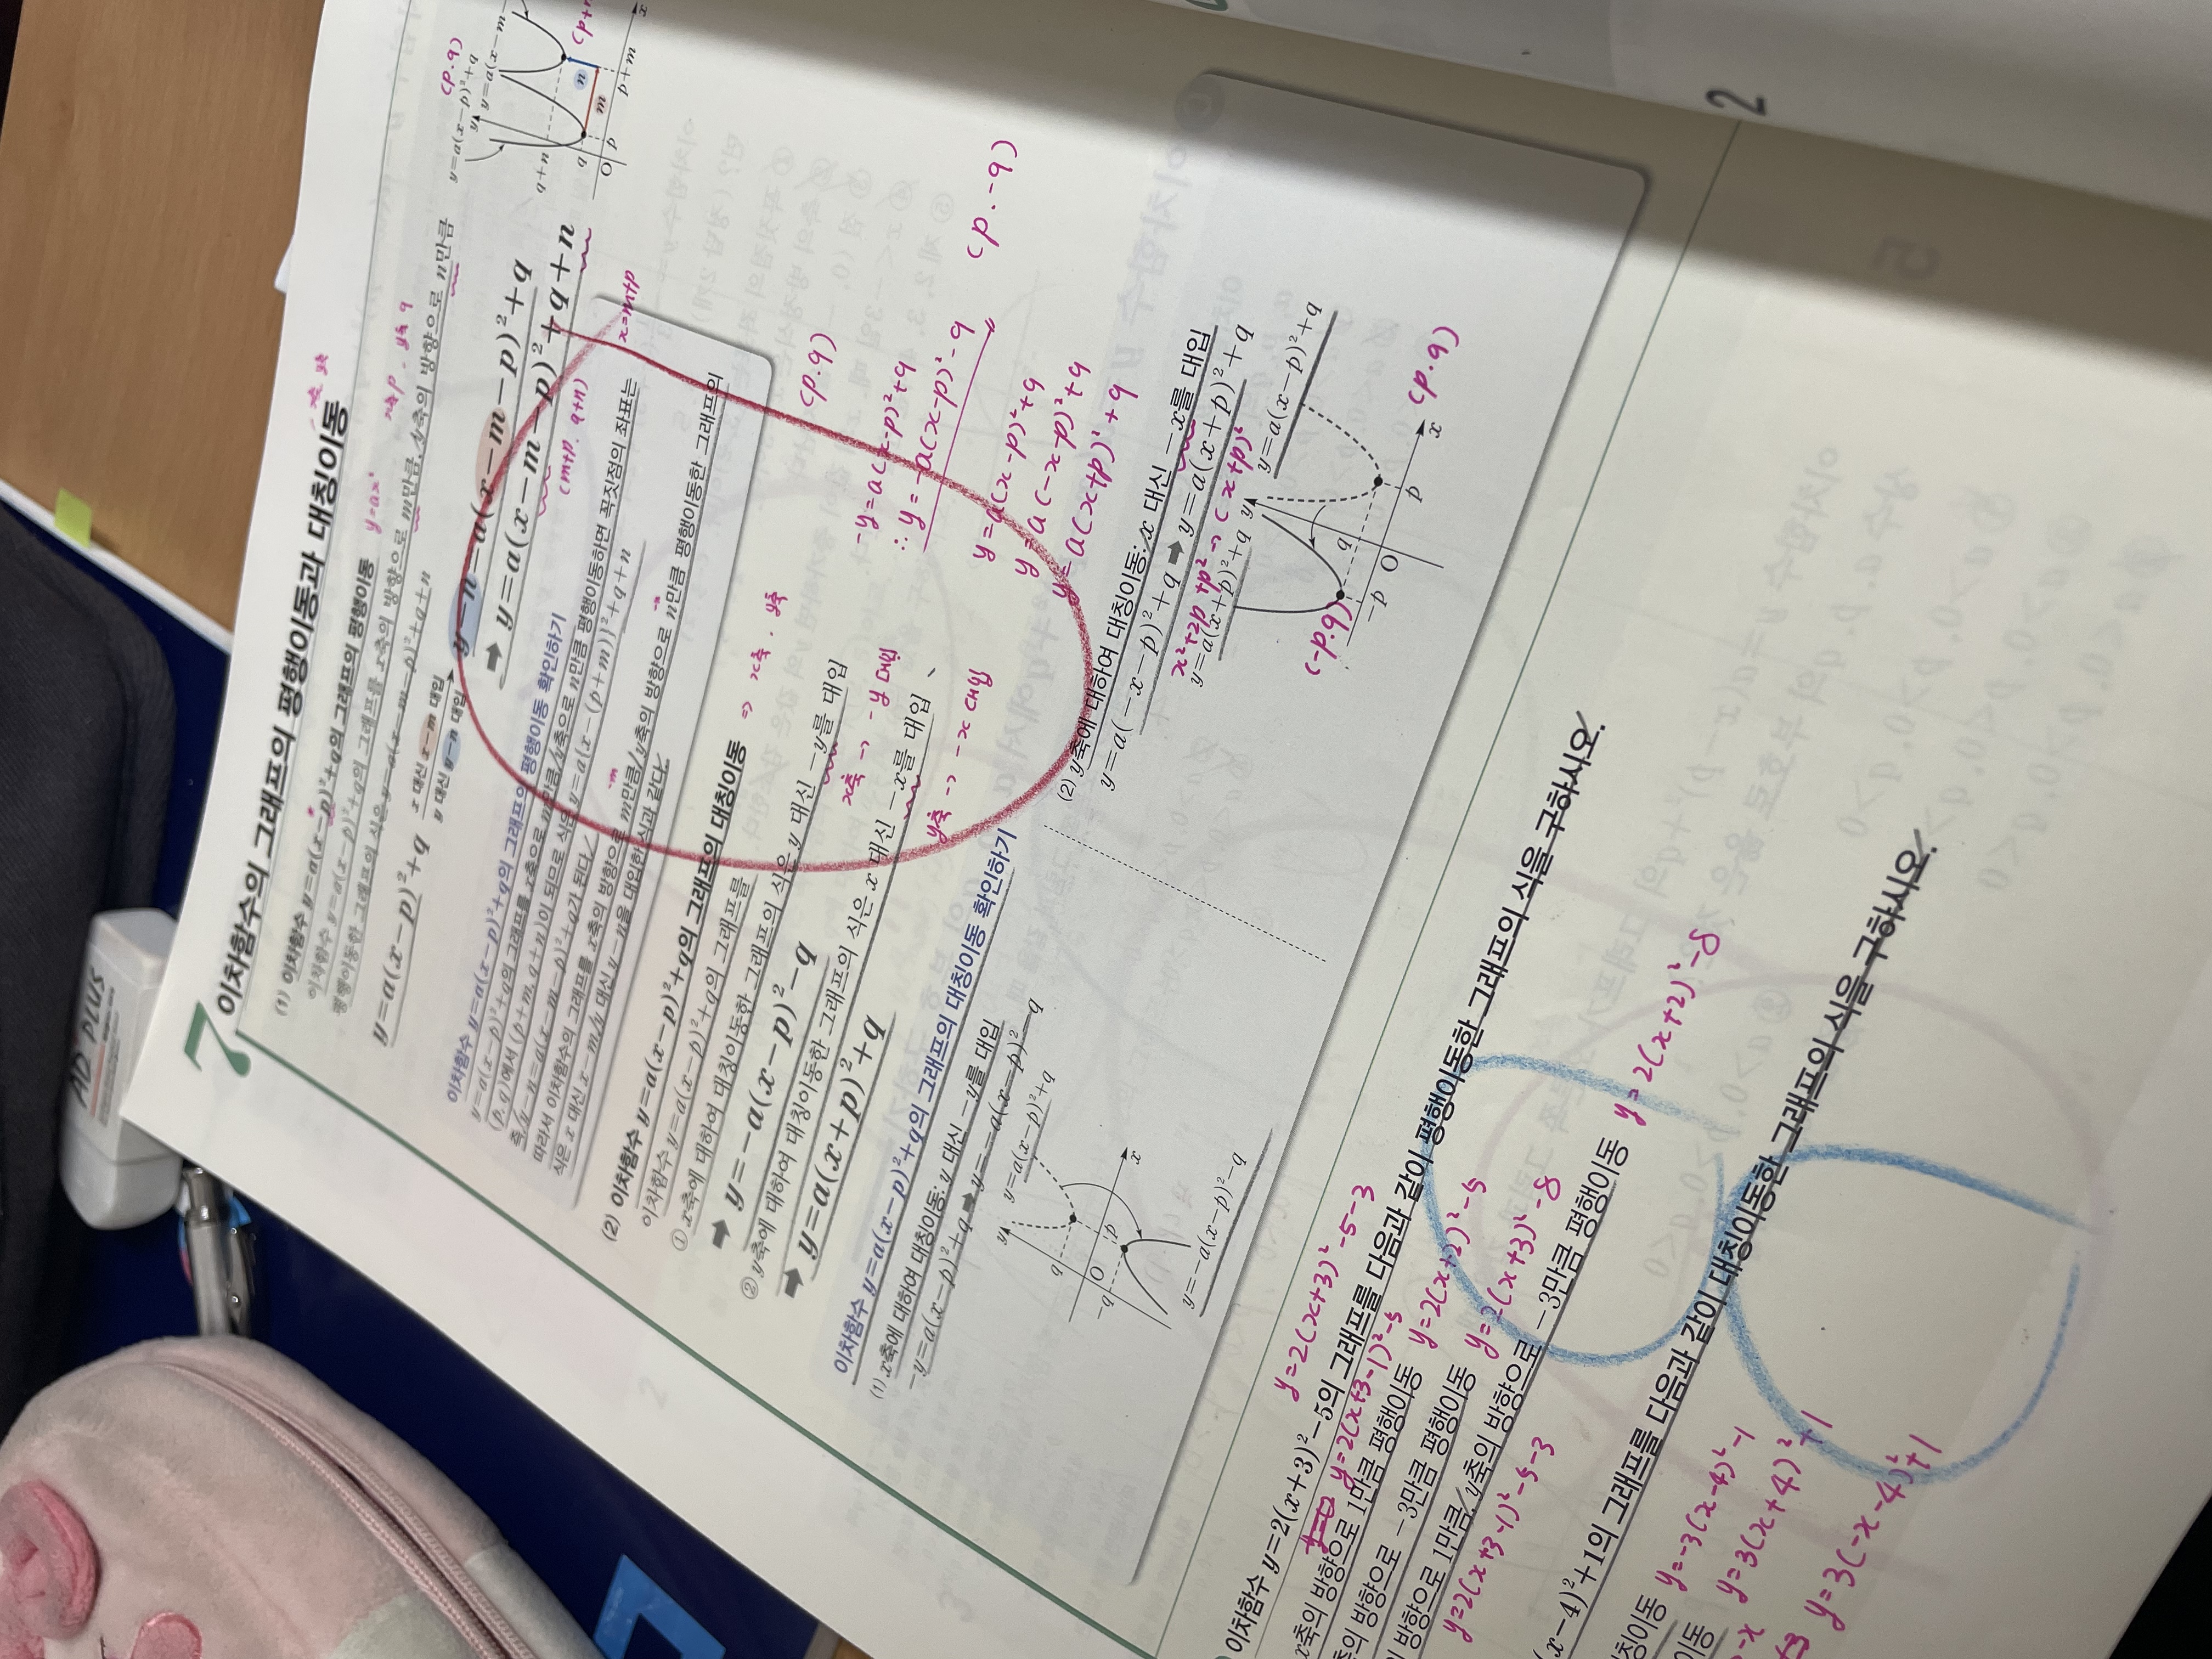 AD PLUS
7
이차함수의 그래프의 평행이동과 대칭이동
x축 y축
(1) 이차함수 y=a(x-p)²+q의 그래프의 평행이동
y=ax²
이차함수 y=a(x-p)²+q의 그래프를 x축의 방향으로 m만큼, y축의 방향으로 n만큼
x축 p . y축 q
평행이동한 그래프의 식은 y=a(x-m-p)²+q+n
y=a(x-p)²+q
x 대신 x-m 대입
y 대신 y-n 대입
y-n=a(x-m-p)²+q
➡ y=a(x-m-p)²+q+n
(m+p. q+n)
x=m+p
y=a(x-p)²+q
(p.q)
y=a(x-m-
q+n
q
O
p
p+m
x
y
m
n
(p+
이차함수 y=a(x-p)²+q의 그래프의 평행이동 확인하기
y=a(x-p)²+q의 그래프를 x축으로 m만큼, y축으로 n만큼 평행이동하면 꼭짓점의 좌표는
(p, q)에서 (p+m, q+n)이 되므로 식은 y=a{x-(p+m)}²+q+n
즉, y-n=a(x-m-p)²+q가 된다.
따라서 이차함수의 그래프를 x축의 방향으로 m만큼, y축의 방향으로 n만큼 평행이동한 그래프의
식은 x 대신 x-m, y 대신 y-n을 대입한 식과 같다.
(2) 이차함수 y=a(x-p)²+q의 그래프의 대칭이동
=> x축 . y축
이차함수 y=a(x-p)²+q의 그래프를
(p.q)
① x축에 대하여 대칭이동한 그래프의 식은 y 대신 -y를 대입
x축 -> -y 대입
➡ y=-a(x-p)²-q
-y=a(x-p)²+q
∴ y=-a(x-p)²-q
(p.-q)
② y축에 대하여 대칭이동한 그래프의 식은 x 대신 -x를 대입
y축 -> -x 대입
➡ y=a(x+p)²+q
y=a(x-p)²+q
y=a(-x-p)²+q
y=a(x+p)²+q
이차함수 y=a(x-p)²+q의 그래프의 대칭이동 확인하기
(1) x축에 대하여 대칭이동: y 대신 -y를 대입
-y=a(x-p)²+q ➡ y=-a(x-p)²-q
y=a(x-p)²+q
y
q
O
p
x
-q
y=-a(x-p)²-q
(2) y축에 대하여 대칭이동: x 대신 -x를 대입
y=a(-x-p)²+q ➡ y=a(x+p)²+q
x²+2p+p² -> (x+p)²
y=a(x+p)²+q
y=a(x-p)²+q
(-p.q)
(p.q)
y
q
-p
O
p
x
y=2(x+3)²-5-3
이차함수 y=2(x+3)²-5의 그래프를 다음과 같이 평행이동한 그래프의 식을 구하시오.
y=2(x+3-1)²-5
x축의 방향으로 1만큼 평행이동 y=2(x+2)²-5
축의 방향으로 -3만큼 평행이동 y=2(x+3)²-8
의 방향으로 1만큼, y축의 방향으로 -3만큼 평행이동 y=2(x+2)²-8
y=2(x+3-1)²-5-3
(x-4)²+1의 그래프를 다음과 같이 대칭이동한 그래프의 식을 구하시오.
칭이동 y=-3(x-4)²-1
이동 y=3(x+4)²+1
-x
y=3(-x-4)²+1
2